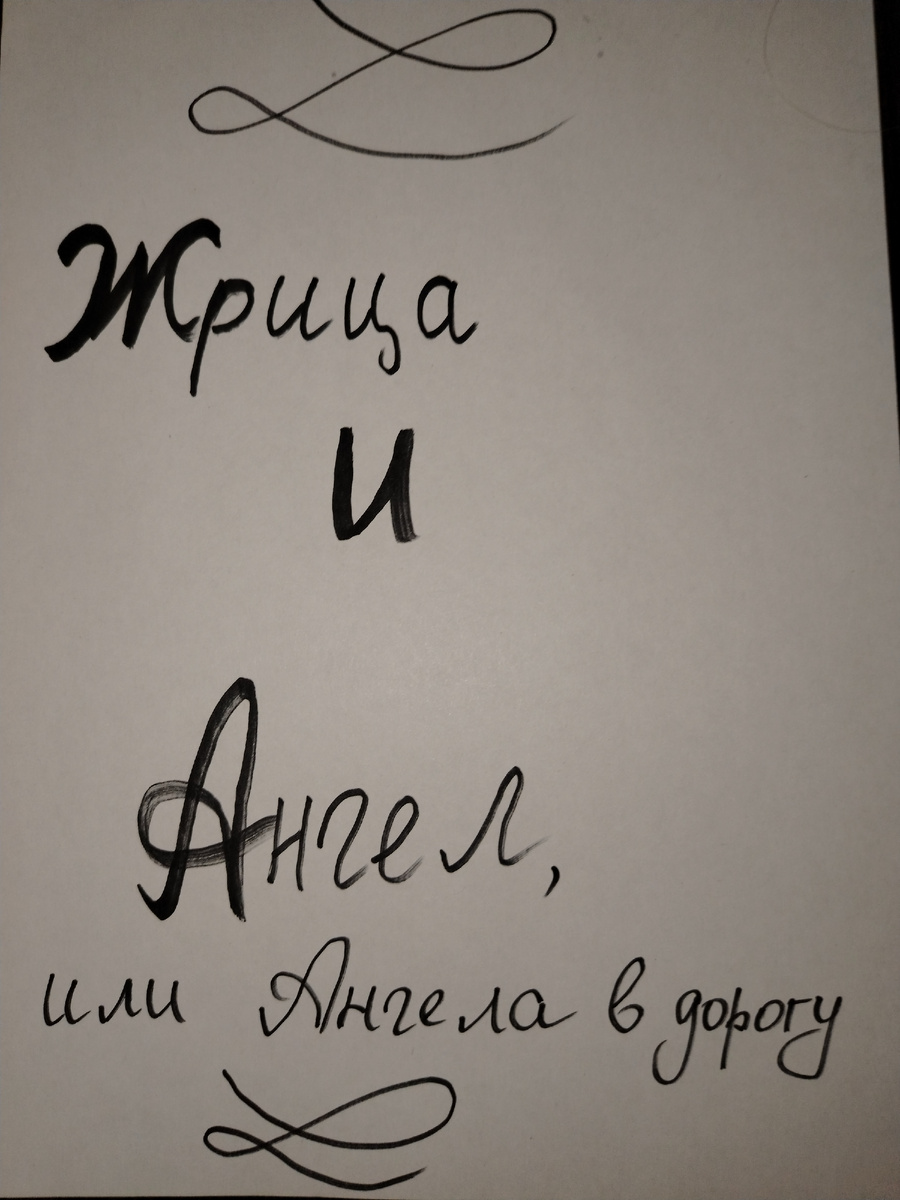 Жрица
и
Ангел,
или Ангела в дорогу